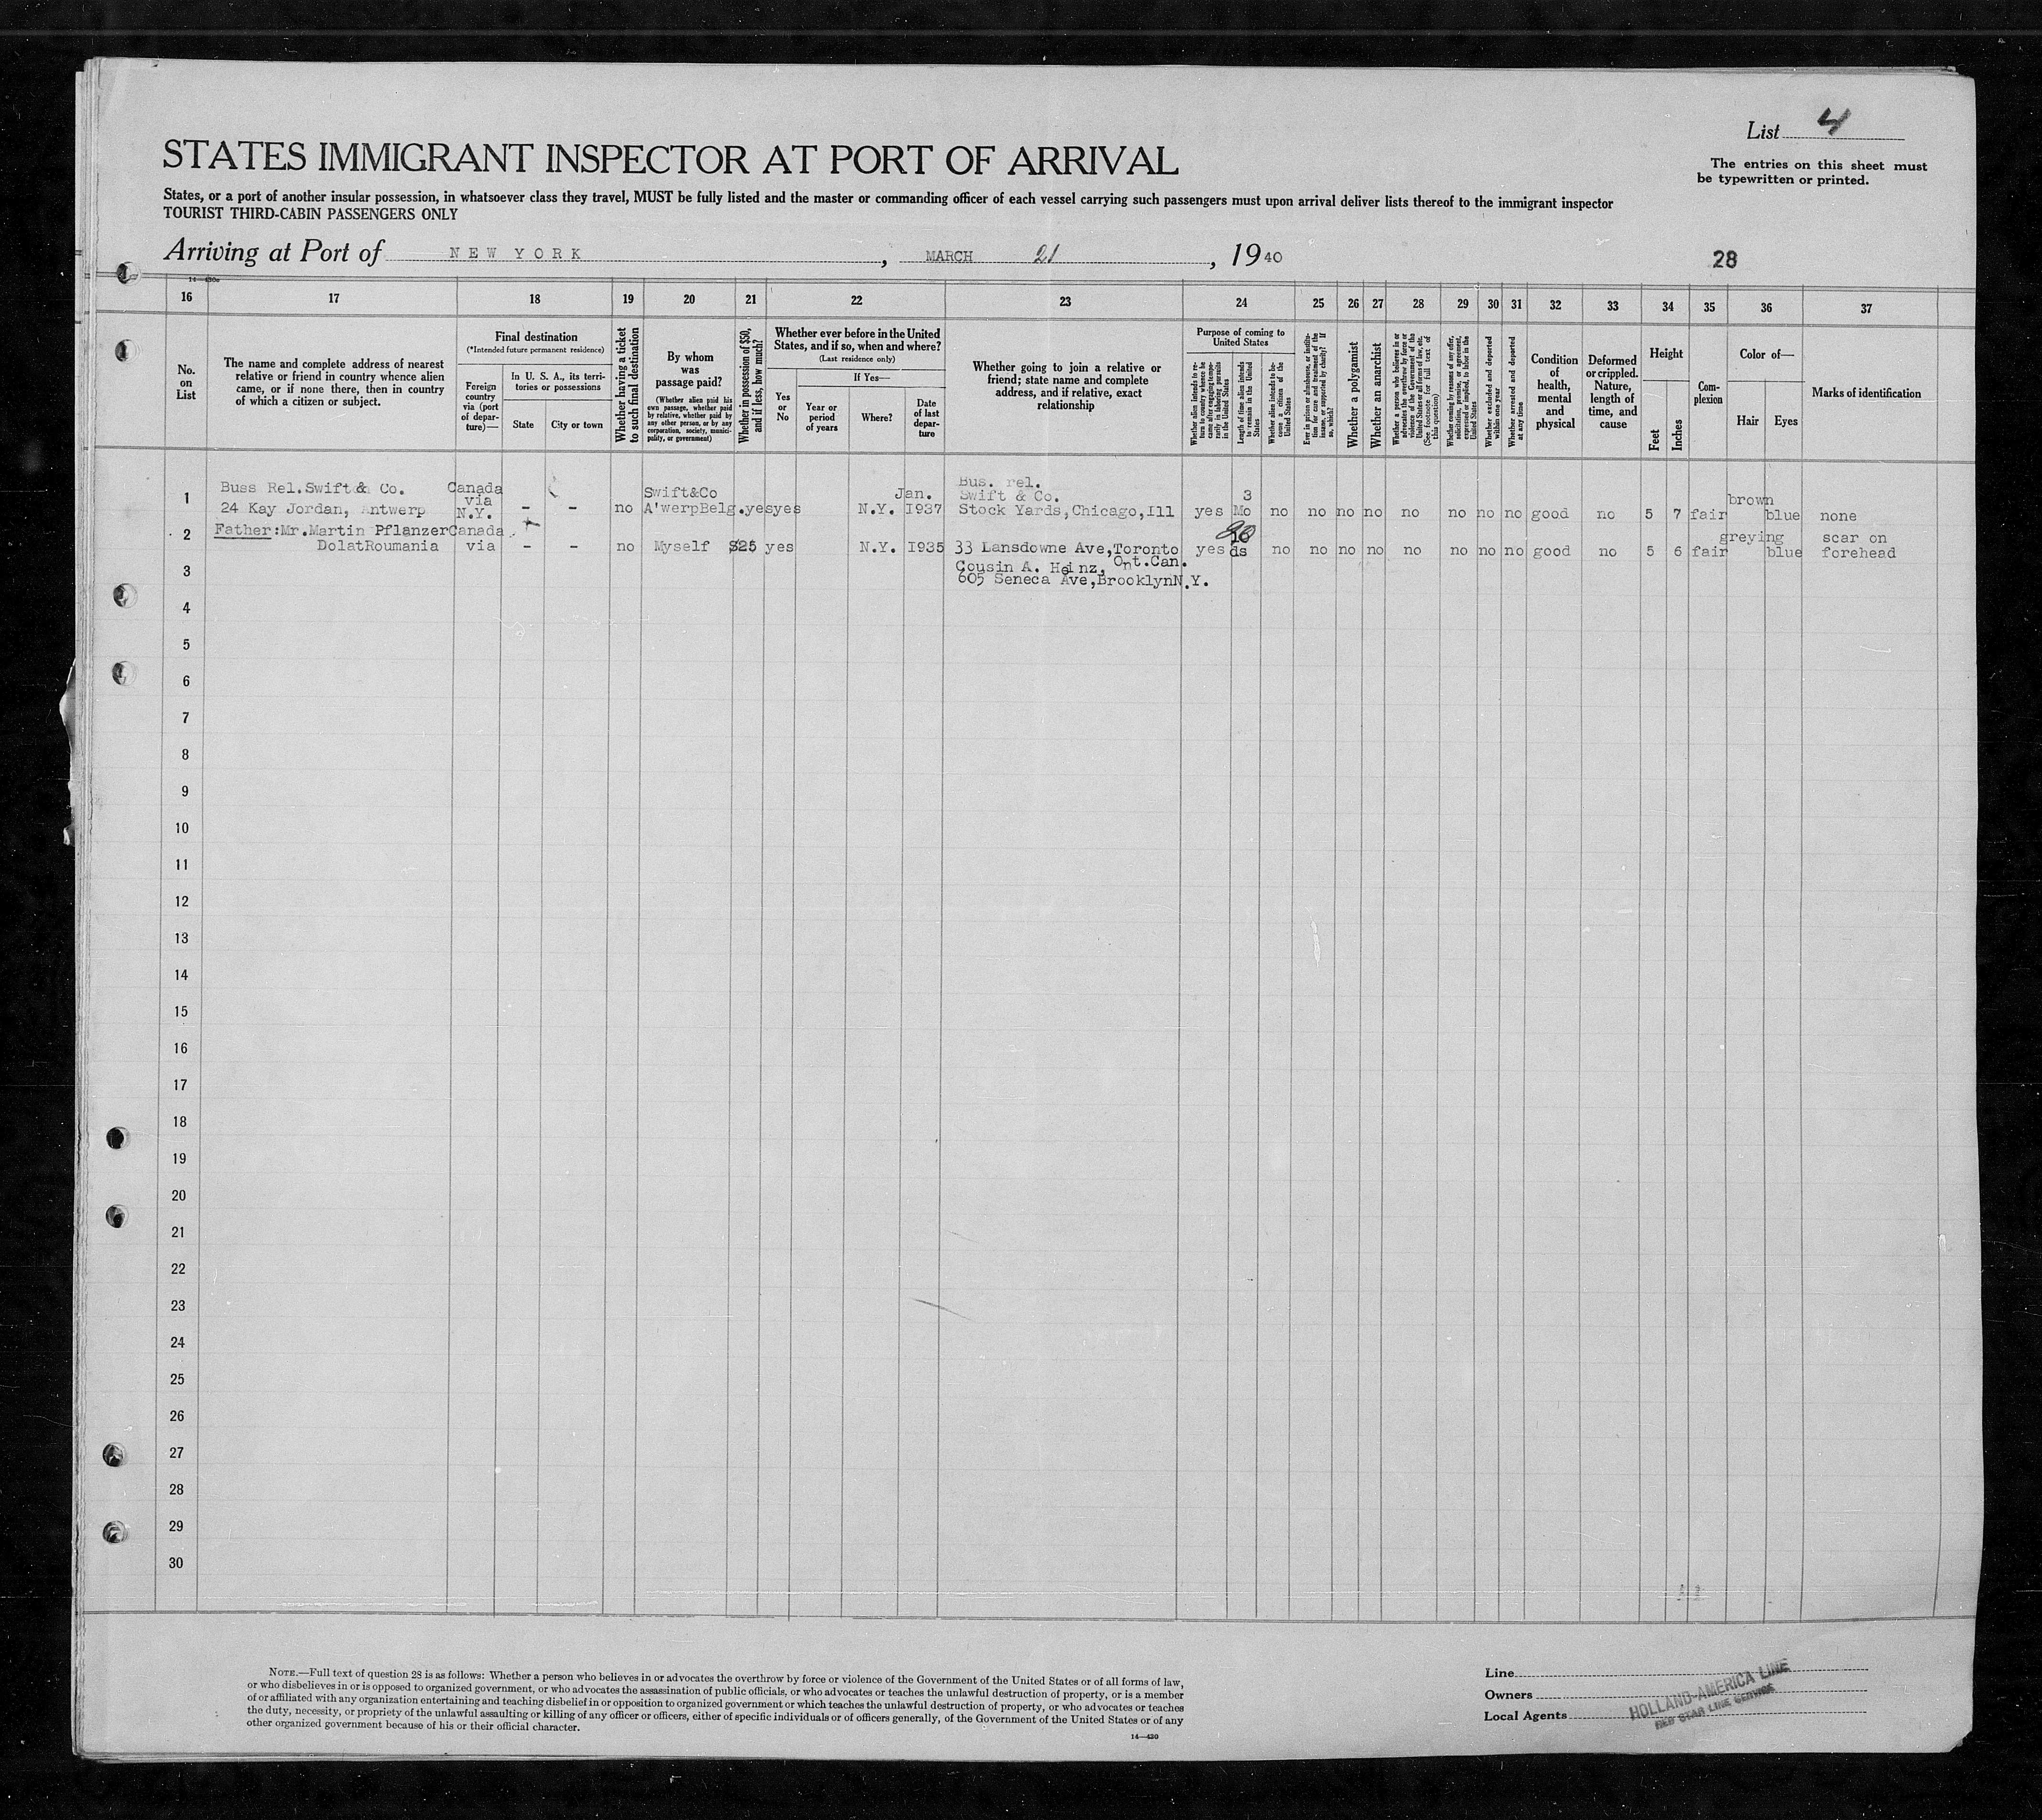 List 4
STATES IMMIGRANT INSPECTOR AT PORT OF ARRIVAL
The entries on this sheet must
be typewritten or printed.
States, or a port of another insular possession, in whatsoever class they travel, MUST be fully listed and the master or commanding officer of each vessel carrying such passengers must upon arrival deliver lists thereof to the immigrant inspector
TOURIST THIRD-CABIN PASSENGERS ONLY
Arriving at Port of NEW YORK, MARCH 21, 1940
28
16 17 18 19 20 21 22 23 24 25 26 27 28 29 30 31 32 33 34 35 36 37
No.
on
List
The name and complete address of nearest
relative or friend in country whence alien
came, or if none there, then in country
of which a citizen or subject.
Final destination
(*Intended future permanent residence)
Foreign
country
via (port
of depar-
ture)—
In U. S. A., its terri-
tories or possessions
State
City or town
Whether having a ticket
to such final destination
By whom
was
passage paid?
(Whether alien paid his
own passage, whether paid
by relative, whether paid by
any other person, or by any
corporation, society, munici-
pality, or government)
Whether in possession of $50,
and if less, how much?
Whether ever before in the United
States, and if so, when and where?
(Last residence only)
Yes
or
No
If Yes—
Year or
period
of years
Where?
Date
of last
depar-
ture
Whether going to join a relative or
friend; state name and complete
address, and if relative, exact
relationship
Purpose of coming to
United States
Whether alien intends to re-
turn to country whence he
came after engaging tempo-
rarily in laboring pursuits
in the United States
Length of time alien intends
to remain in the United
States
Whether alien intends to be-
come a citizen of the
United States
Ever in prison or almshouse, or institu-
tion for care and treatment of the
insane, or supported by charity? If
so, which?
Whether a polygamist
Whether an anarchist
Whether a person who believes in or
advocates the overthrow by force or
violence of the Government of the
United States or all forms of law, etc.
(See footnote for full text of
this question)
Whether coming by reasons of any offer,
solicitation, promise, or agreement,
expressed or implied, to labor in the
United States
Whether excluded and deported
within one year
Whether arrested and deported
at any time
Condition
of
health,
mental
and
physical
Deformed
or crippled.
Nature,
length of
time, and
cause
Height
Feet
Inches
Com-
plexion
Color of—
Hair
Eyes
Marks of identification
1 Buss Rel.Swift & Co. Canada via Swift&Co Jan. Bus. rel. Swift & Co. 3 brown
24 Kay Jordan, Antwerp N.Y. - - no A'werpBelg. yes yes N.Y. I937 Stock Yards,Chicago,Ill yes Mo no no no no no no no no good no 5 7 fair blue none
2 Father:Mr.Martin Pflanzer Canada 10 greying scar on
DolatRoumania via - - no Myself $25 yes N.Y. I935 33 Lansdowne Ave,Toronto yes ds no no no no no no no no good no 5 6 fair blue forehead
3 Cousin A. Heinz, Ont.Can.
605 Seneca Ave,BrooklynN.Y.
4
5
6
7
8
9
10
11
12
13
14
15
16
17
18
19
20
21
22
23
24
25
26
27
28
29
30
NOTE.—Full text of question 28 is as follows: Whether a person who believes in or advocates the overthrow by force or violence of the Government of the United States or of all forms of law,
or who disbelieves in or is opposed to organized government, or who advocates the assassination of public officials, or who advocates or teaches the unlawful destruction of property, or is a member
of or affiliated with any organization entertaining and teaching disbelief in or opposition to organized government or which teaches the unlawful destruction of property, or who advocates or teaches
the duty, necessity, or propriety of the unlawful assaulting or killing of any officer or officers, either of specific individuals or of officers generally, of the Government of the United States or of any
other organized government because of his or their official character.
14—430
Line
Owners
Local Agents
HOLLAND-AMERICA LINE
RED STAR LINE SERVICE